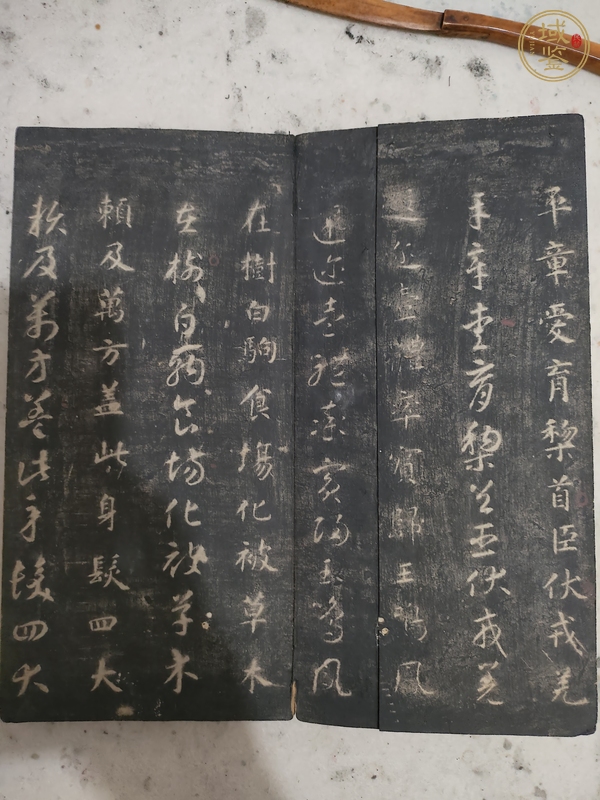 平章愛育黎首臣伏戎羌
平章愛育黎首臣伏戎羌
遐迩壹體率賓歸王鳴鳳
遐迩壹體率賓歸王鳴鳳
在樹白駒食場化被草木
在樹白駒食場化被草木
賴及萬方蓋此身髮四大
賴及萬方蓋此身髮四大
域鉴